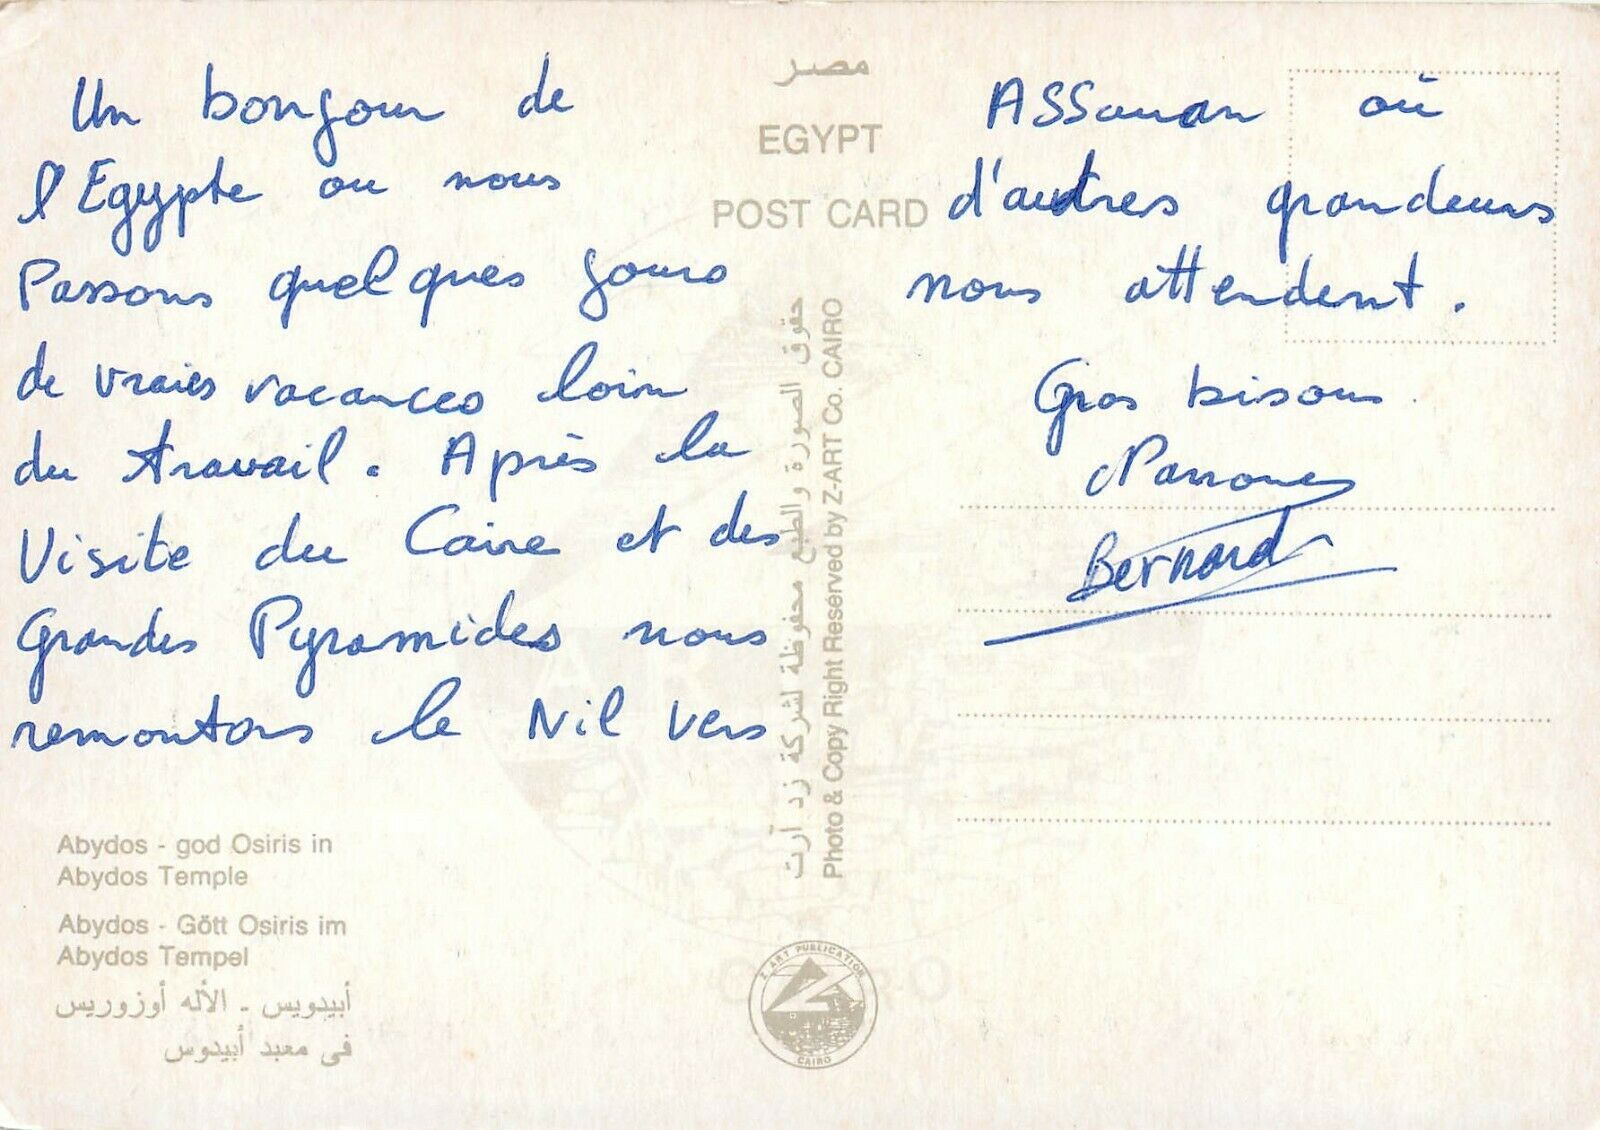 Un bonjour de
l'Egypte ou nous
Passons quelques jours
de vraies vacances loin
du travail. Après la
Visite du Caire et des
Grandes Pyramides nous
remontons le Nil vers
ASSouan où
d'autres grandeurs
nous attendent.
Gros bisous
Bernard
مصر
EGYPT
POST CARD
حقوق الصورة والطبع محفوظة لشركة زد آرت
Photo & Copy Right Reserved by Z-ART Co. CAIRO
Abydos - god Osiris in
Abydos Temple
Abydos - Gött Osiris im
Abydos Tempel
أبيدويس - الأله أوزوريس
فى معبد أبيدوس
Z ART PUBLICATION
CAIRO